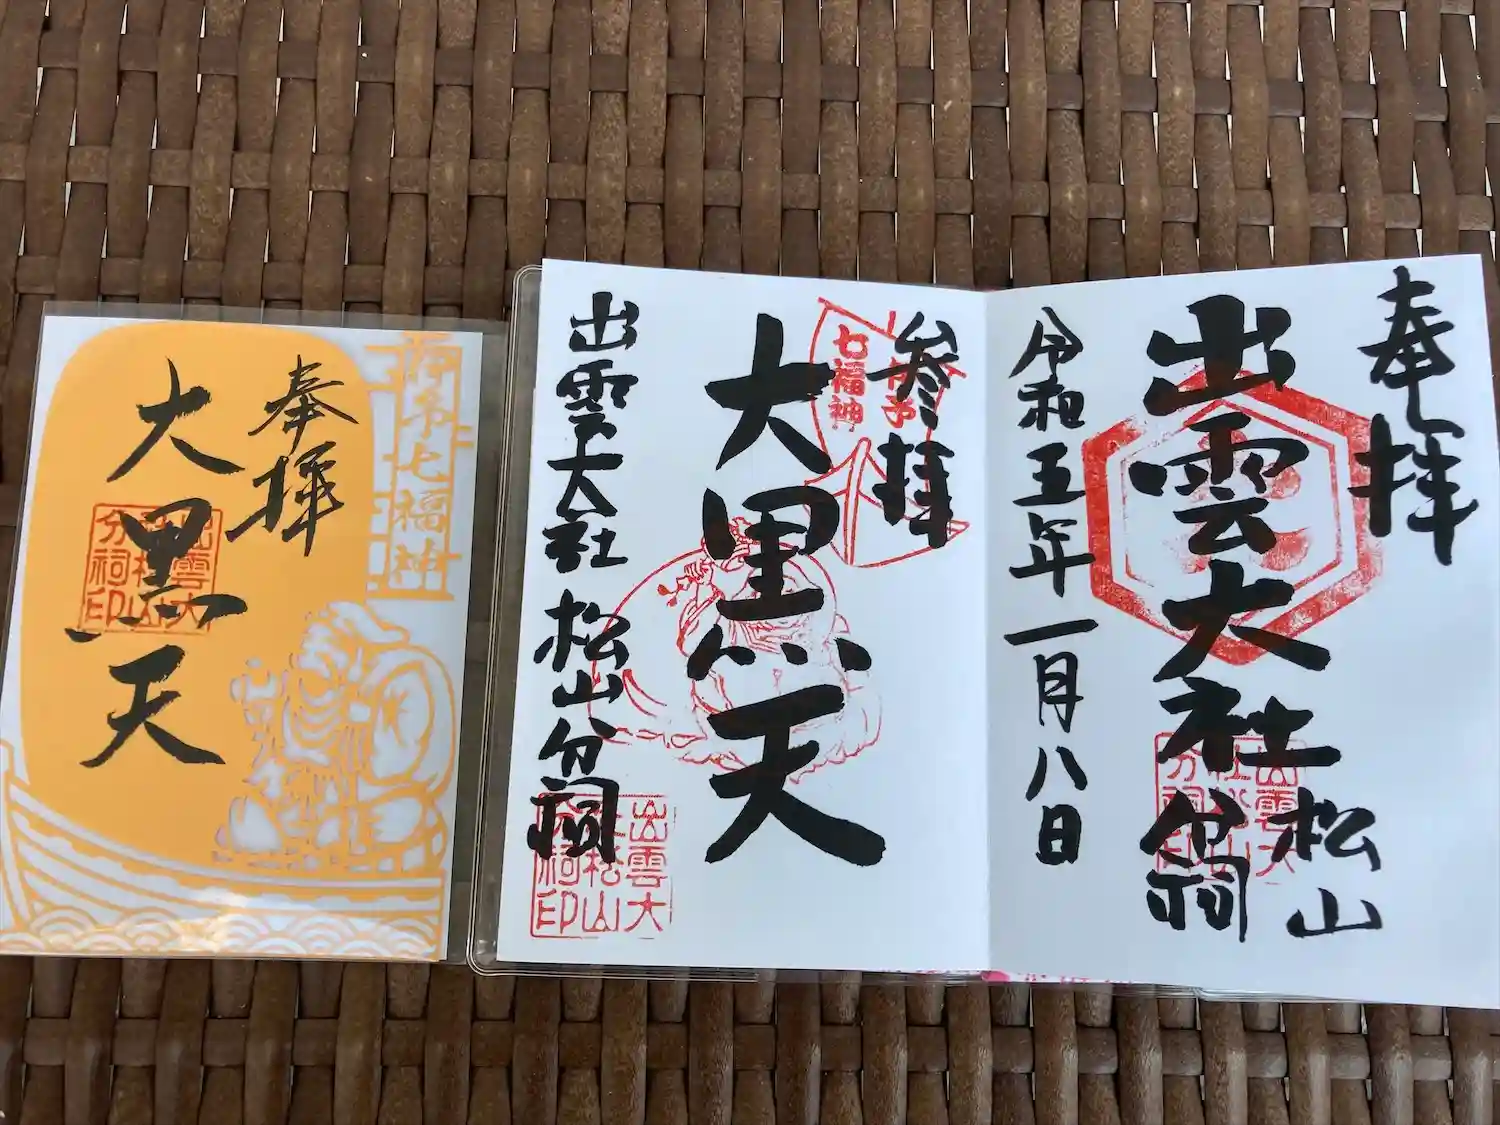 奉拝
出雲大社
松山
分祠
令和五年一月八日
参拝
伊予
七福神
大黒天
出雲大社松山分祠
出雲大
社松山
分祠印
出雲大
社松山
分祠印
伊予七福神
奉拝
大黒天
出雲大
社松山
分祠印